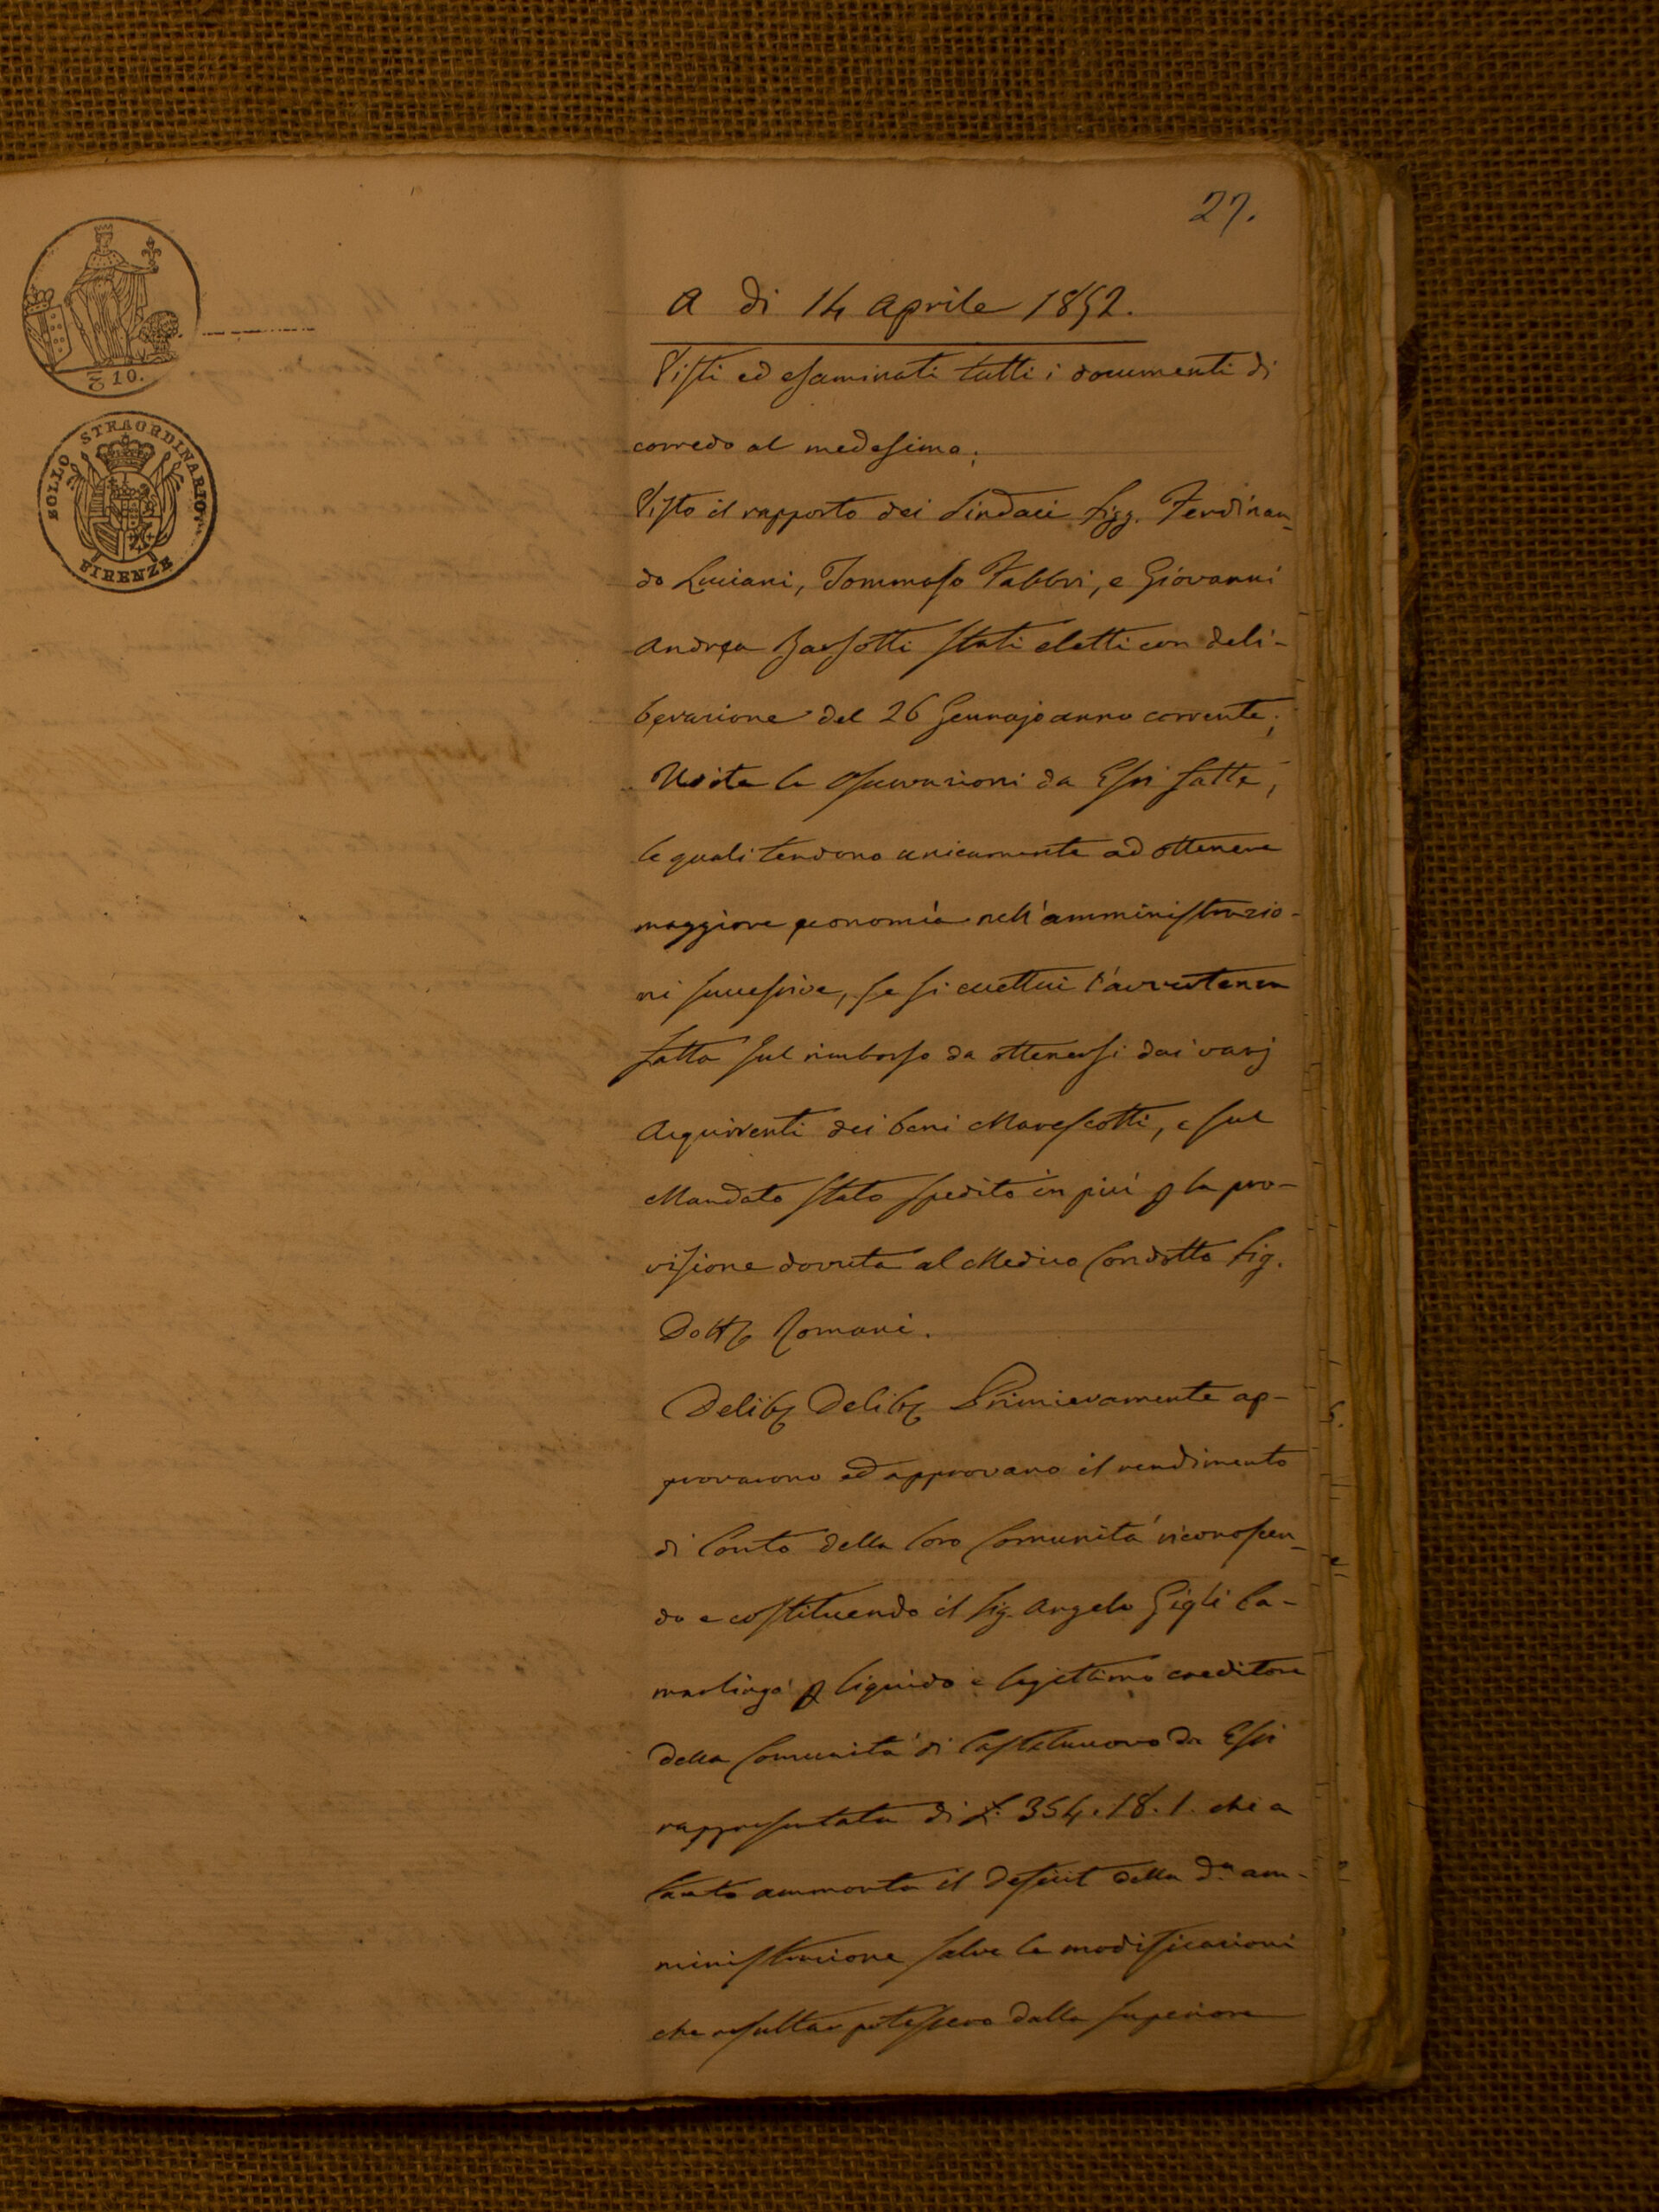 27.
A di 14 Aprile 1852.
10.
BOLLO STRAORDINARIO
FIRENZE
Visti ed esaminati tutti i documenti di
corredo al medesimo;
Visto il rapporto dei Sindaci Sigg. Ferdinan-
do Luciani, Tommaso Fabbri, e Giovanni
Andrea Barsotti stati eletti con deli-
berazione del 26 Gennajo anno corrente;
Udite le osservazioni da Essi fatte,
le quali tendono unicamente ad ottenere
maggiore economia nell'amministrazio-
ni successive, se si eccettui l'avvertenza
fatta sul rimborso da ottenersi dai varj
Acquirenti dei beni Marescotti, e sul
Mandato stato spedito in più p la prov-
visione dovuta al Medico Condotto Sig.
Dott. Romani.
Delib. Delib. Primieramente ap-
provarono ed approvano il rendimento
di Conto della loro Comunità riconoscen-
do e costituendo il Sig. Angelo Gigli Ca-
marlingo p liquido e legittimo creditore
della Comunità di Castelnuovo da Essi
rappresentata di £. 354.18.1. che a
tanto ammonta il deficit della d.a am-
ministrazione salve le modificazioni
che resultar potessero dalla superiore